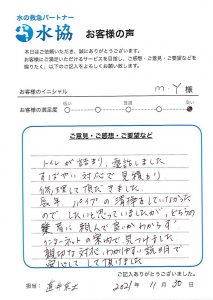 水の救急パートナー
水協
お客様の声
本日はご依頼いただき、誠にありがとうございます。
お客様にご満足いただけるサービスを目指し、ご感想・ご意見・ご要望などを
賜りたく、以下のご記入をよろしくお願い致します。
お客様のイニシャル
M.Y 様
お客様の満足度
低い
普通
良い
ご意見・ご感想・ご要望など
トイレが詰まり、電話しました
すばやい対応で見積もり
修理して頂だきました。
長年 パイプの清掃もしていなかった
ので したいと思っていましたが、どちらの
業者に頼んで良いかわからず
インターネットの案内で見つけました
親切な対応とわかりやすい説明で
安心して して頂けました
ご記入ありがとうございました。
担当者
2021年 11月 30日